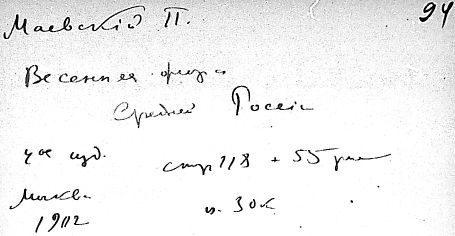 94
Маевский П.
Весенняя флора
Средней Россіи
4ое изд. стр 118 + 55 рис
Москва ц. 30 к
1902